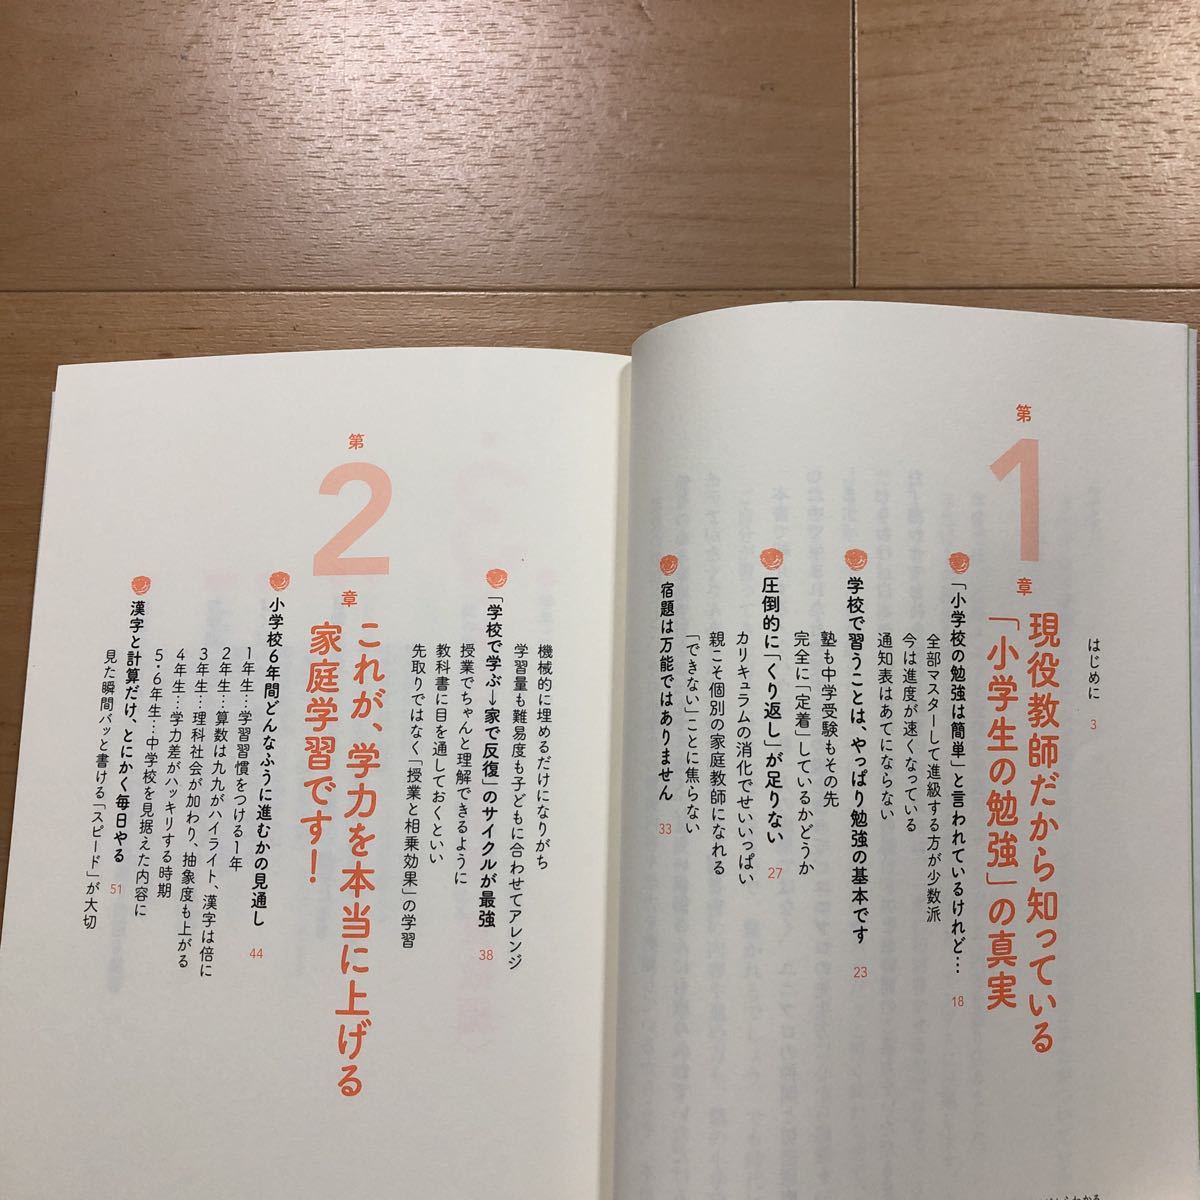 はじめに 3
第1章
現役教師だから知っている
「小学生の勉強」の真実
「小学校の勉強は簡単」と言われているけれど… 18
全部マスターして進級する方が少数派
今は進度が速くなっている
通知表はあてにならない
学校で習うことは、やっぱり勉強の基本です 23
塾も中学受験もその先
完全に「定着」しているかどうか
圧倒的に「くり返し」が足りない 27
カリキュラムの消化でせいいっぱい
親こそ個別の家庭教師になれる
「できない」ことに焦らない
宿題は万能ではありません 33
機械的に埋めるだけになりがち
学習量も難易度も子どもに合わせてアレンジ
「学校で学ぶ→家で反復」のサイクルが最強 38
授業でちゃんと理解できるように
教科書に目を通しておくといい
先取りではなく「授業と相乗効果」の学習
第2章
これが、学力を本当に上げる
家庭学習です！
小学校6年間どんなふうに進むかの見通し 44
1年生…学習習慣をつける1年
2年生…算数は九九がハイライト、漢字は倍に
3年生…理科社会が加わり、抽象度も上がる
4年生…学力差がハッキリする時期
5・6年生…中学校を見据えた内容に
漢字と計算だけ、とにかく毎日やる 51
見た瞬間パッと書ける「スピード」が大切